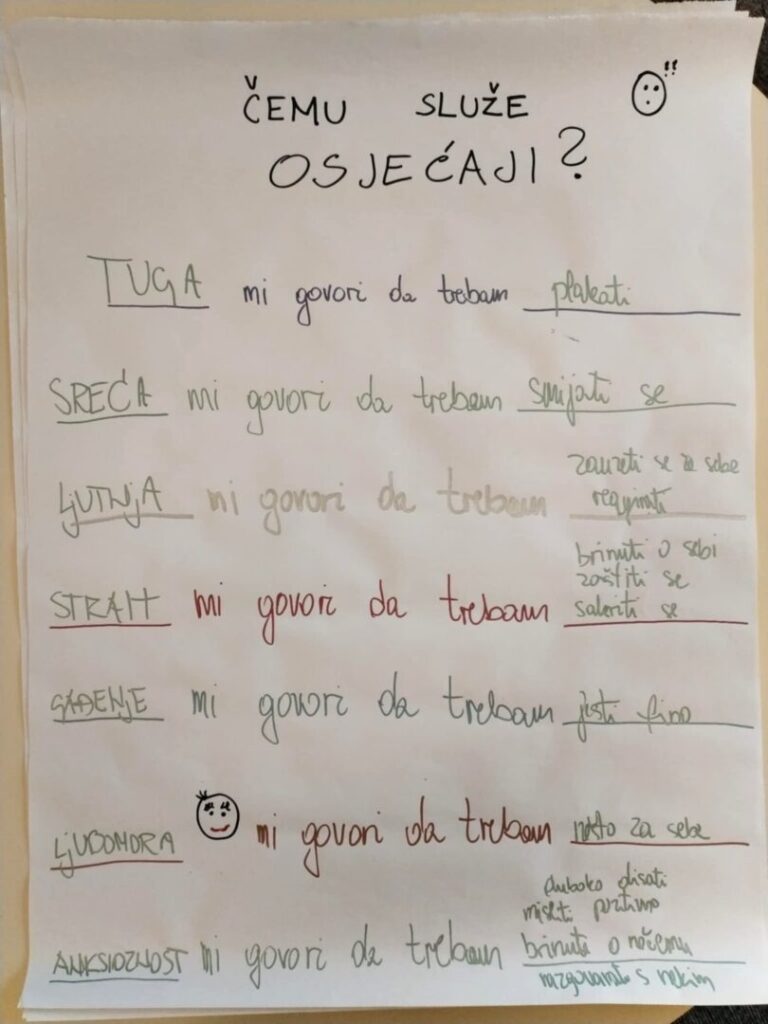 ČEMU SLUŽE
OSJEĆAJI?
TUGA mi govori da trebam plakati
SREĆA mi govori da trebam smijati se
zauzeti se za sebe
LJUTNJA mi govori da trebam
brinuti o sebi
zaštiti se
STRAH mi govori da trebam sakriti se
GAĐENJE mi govori da trebam jesti fino
LJUBOMORA mi govori da trebam nešto za sebe
duboko disati
misliti pozitivno
ANKSIOZNOST mi govori da trebam brinuti o nečemu
razgovarati s nekim